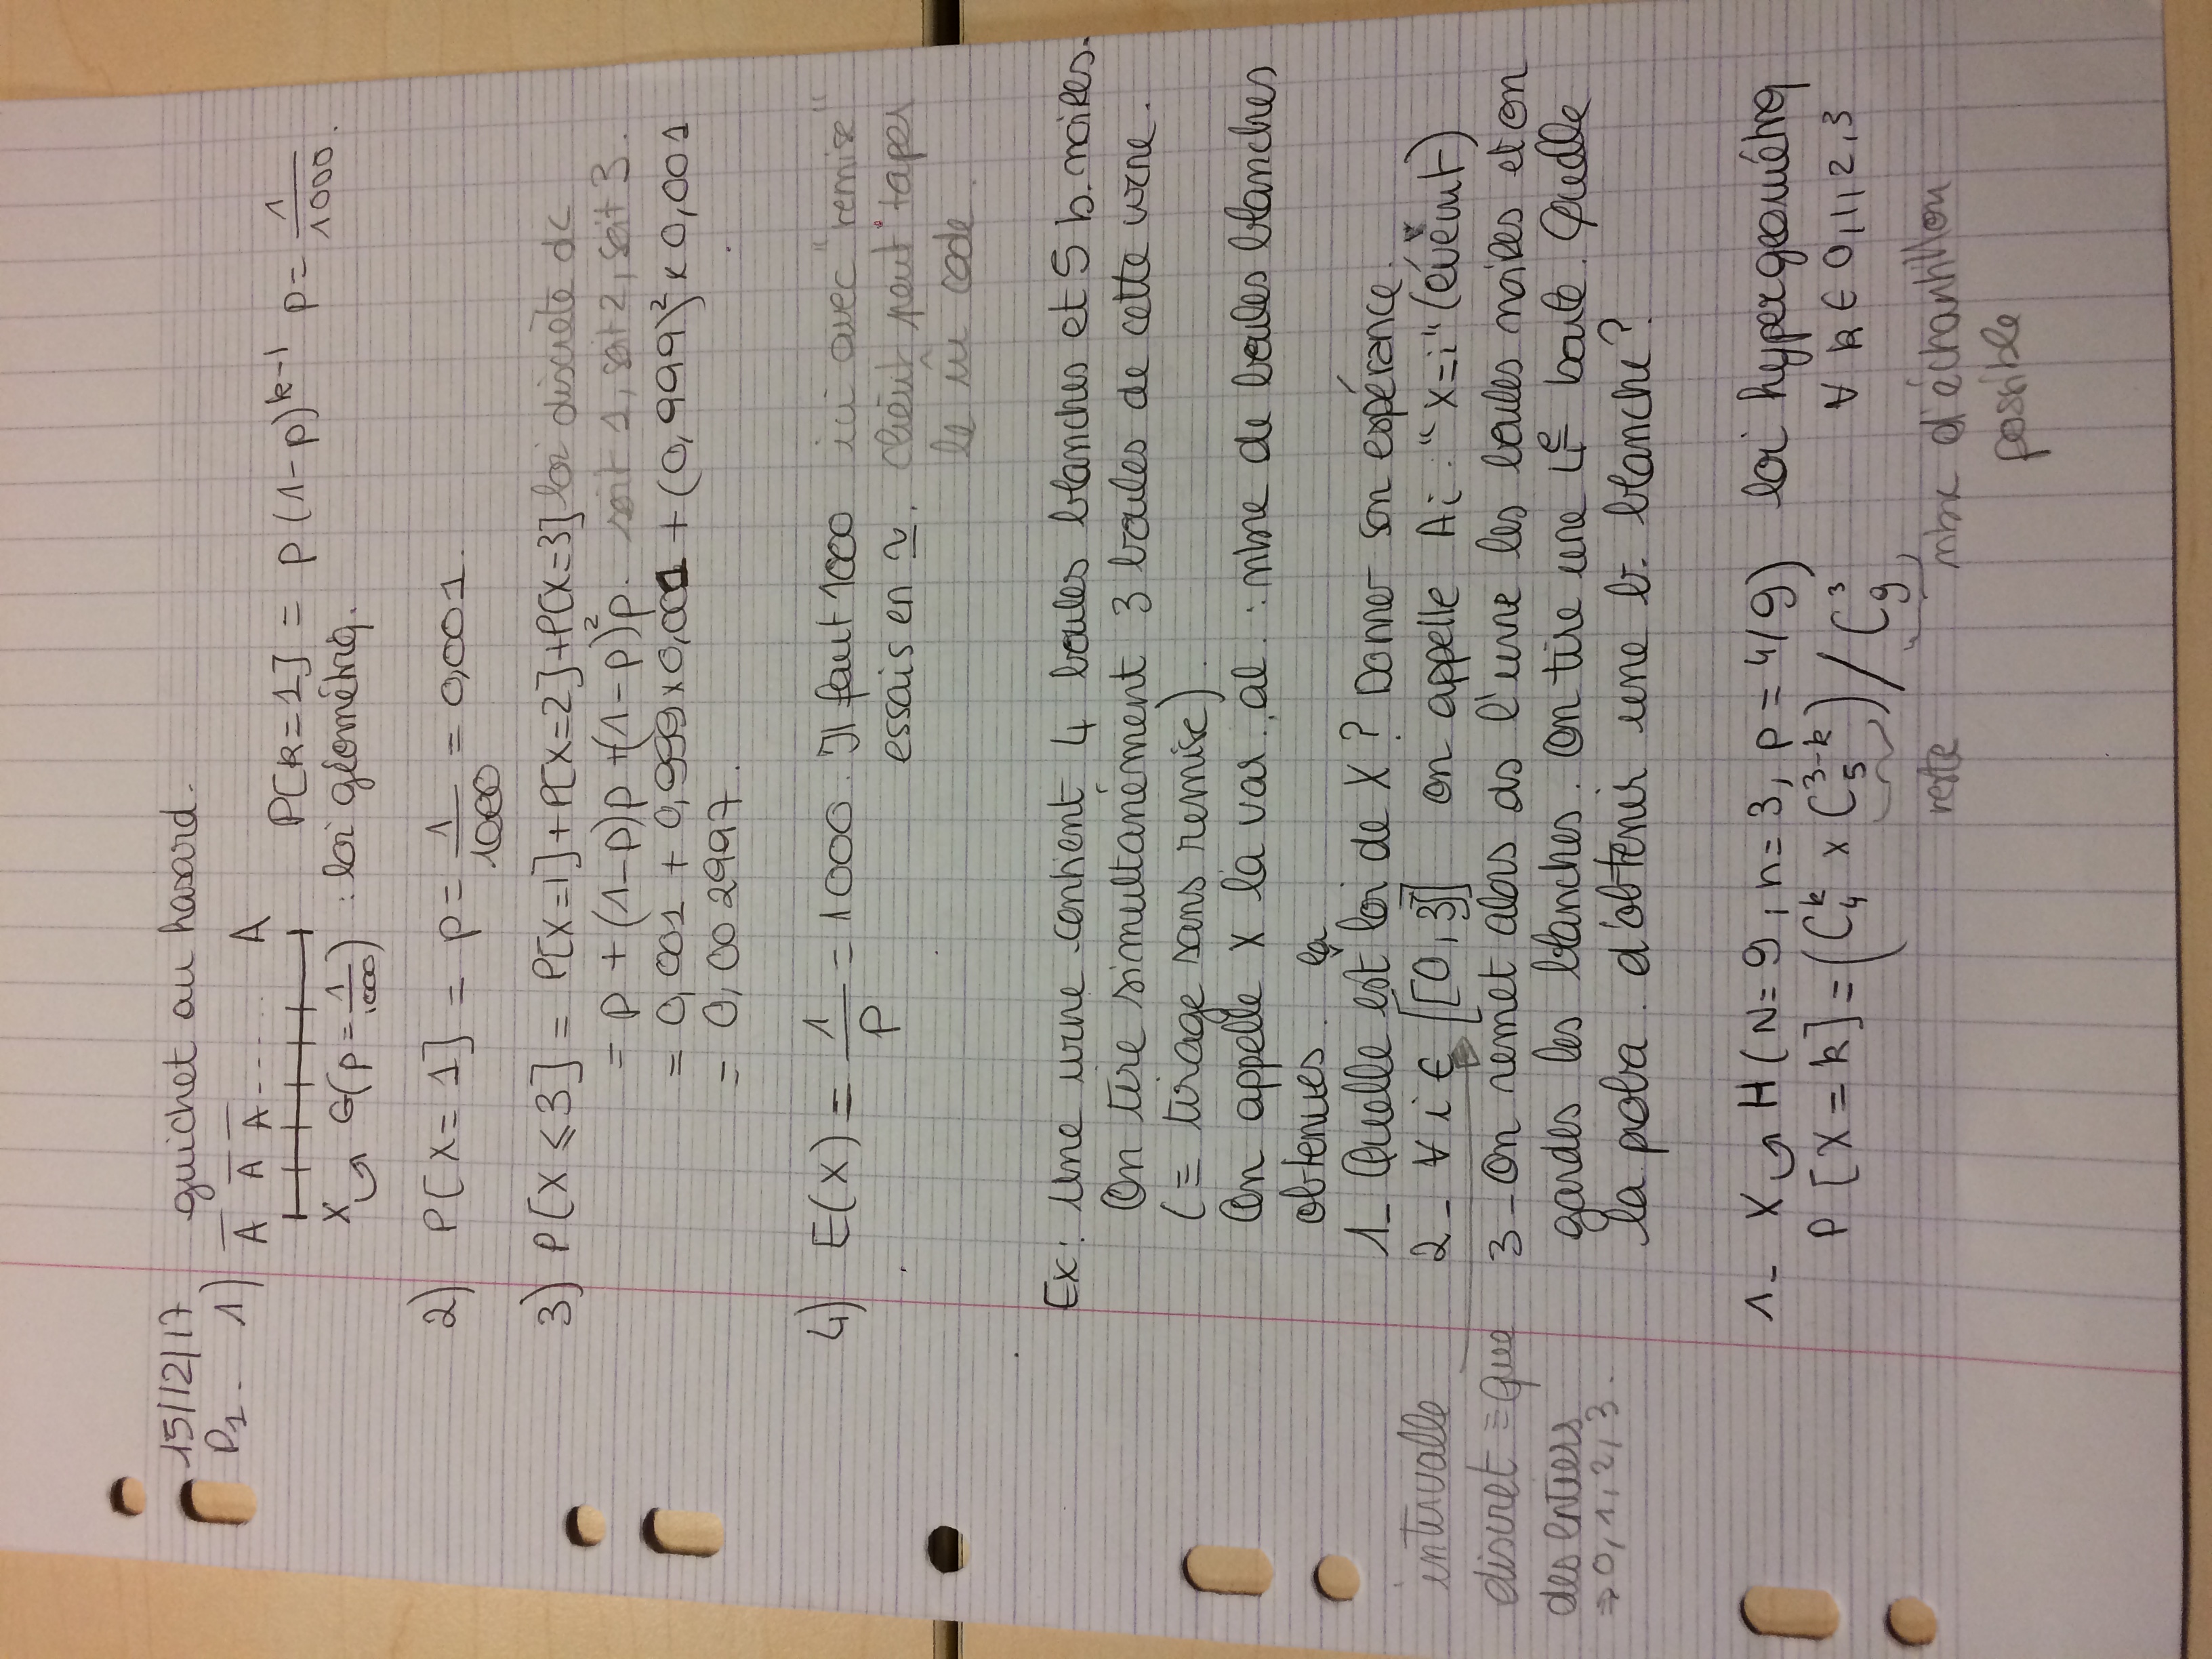 15/12/17 guichet au hasard.
P1. 1) A̅ A̅ A̅ ------ A
P[k=1] = p(1-p)^{k-1} p = 1/1000.
X ↪ G(p = 1/1000) : loi géométriq.
2) P[X=1] = p = 1/1000 = 0,001.
3) P[X ⩽ 3] = P[X=1]+P[X=2]+P[X=3] loi discrète dc
= p + (1-p)p + (1-p)²p. soit 1, soit 2, soit 3.
= 0,001 + 0,999 x 0,001 + (0,999)² x 0,001
= 0,002997.
4) E(X) = 1/P = 1000. Il faut 1000 ici avec "remise"
essais en ≃. client peut taper
le m̂ code.
Ex : Une urne contient 4 boules blanches et 5 b. noires.
On tire simultanément 3 boules de cette urne.
(= tirage sans remise).
On appelle X la var. al. : nbre de boules blanches
obtenues. la
1_ Quelle est loi de X ? Donner son espérance.
2_ ∀ i ∈ [[0,3]] on appelle Ai : "X=i" (événmt)
3_ On remet alors ds l'urne les boules noires et on
gardes les blanches. On tire une 4e boule. Quelle
la proba. d'obtenir une b. blanche ?
intervalle
discret = que
des entiers
⇒ 0,1,2,3.
1_ X ↪ H (N=9, n=3, p=4/9) loi hypergéométriq
P[X=k] = (C_4^k x C_5^{3-k}) / C_9^3 ∀ k ∈ 0,1,2,3
reste nbre d'échantillon
possible